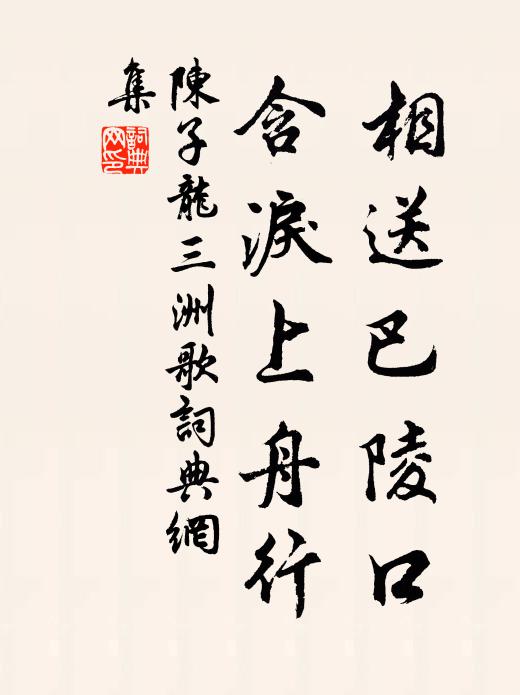 相送巴陵口
含淚上舟行
陳子龍三洲歌詞典網
集
詞典網印